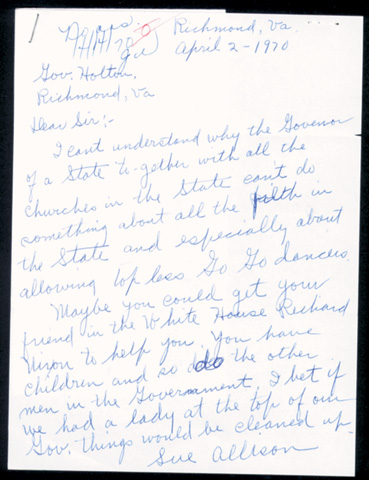 Richmond, Va.
April 2-1970
Gov. Holton.
Richmond, Va
Dear Sir:-
I cant understand why the Govenor
of a State to-gether with all the
churches in the State can't do
something about all the filth in
the State and especially about
allowing top less Go Go dancers.
Maybe you could get your
friend in the White House Richard
Nixon to help you. You have
children and so do the other
men in the Government. I bet if
we had a lady at the top of our
Gov. things would be cleaned up.
Sue Allison